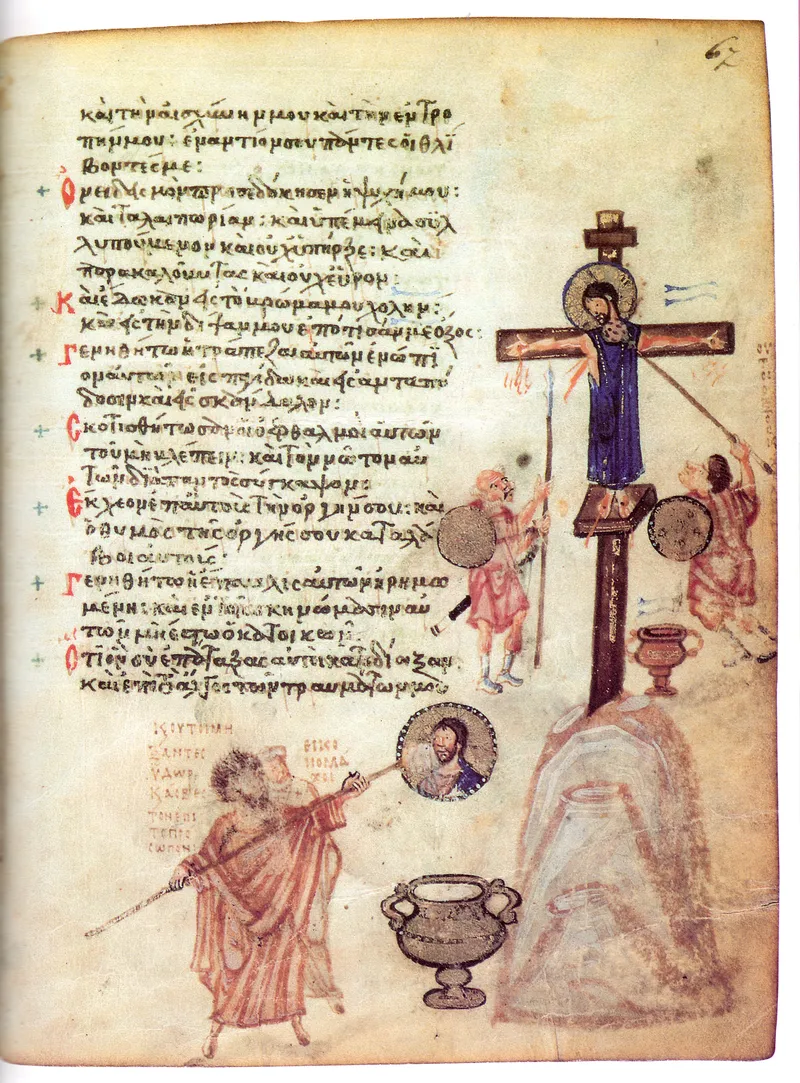 67
καὶ τὴν αἰσχύνην μου καὶ τὴν ἐντρο
πήν μου: ἐναντίον σου πάντες οἱ θλί
βοντές με:
Ὀνειδισμὸν προσεδόκησεν ἡ ψυχή μου:
καὶ ταλαιπωρίαν: καὶ ὑπέμεινα συλ
λυπούμενον καὶ οὐχ ὑπῆρξε: καὶ
παρακαλοῦντας καὶ οὐχ εὗρον:
Καὶ ἔδωκαν εἰς τὸ βρῶμά μου χολήν:
καὶ εἰς τὴν δίψαν μου ἐπότισάν με ὄξος:
Γενηθήτω ἡ τράπεζα αὐτῶν ἐνώπι
ον αὐτῶν εἰς παγίδα καὶ εἰς ἀνταπό
δοσιν καὶ εἰς σκάνδαλον:
Σκοτισθήτωσαν οἱ ὀφθαλμοὶ αὐτῶν
τοῦ μὴ βλέπειν: καὶ τὸν νῶτον αὐ
τῶν διὰ παντὸς σύγκαμψον:
Ἔκχεον ἐπ' αὐτοὺς τὴν ὀργήν σου: καὶ
ὁ θυμὸς τῆς ὀργῆς σου καταλά
βοι αὐτούς:
Γενηθήτω ἡ ἔπαυλις αὐτῶν ἠρημω
μένη: καὶ ἐν τοῖς σκηνώμασιν αὐ
τῶν μὴ ἔστω ὁ κατοικῶν:
Ὅτι ὃν σὺ ἐπάταξας αὐτοὶ κατεδίωξαν:
καὶ ἐπὶ τὸ ἄλγος τῶν τραυμάτων μου
ΞΑΝΤΕΣ
ΥΔΩΡ
ΕΙΚΟ
ΝΟΜΑ
ΧΟΙ